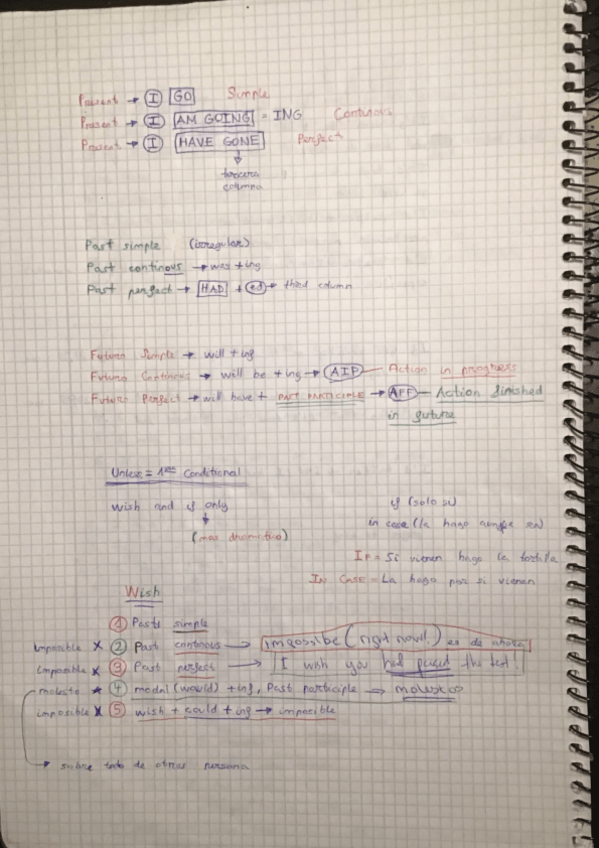 Present → I GO Simple
Present → I AM GOING - ING Continous
Present → I HAVE GONE Perfect
↓
tercera
columna
Past simple (irregular)
Past continous → was + ing
Past perfect → HAD + ed → third column
Futuro Simple → will + inf
Futuro Continous → will be + ing → AIP — Action in progress
Futuro Perfect → will have + PAST PARTICIPLE → AFF — Action finished
in future
Unless = 1ª Conditional
wish and if only
↓
(mas dramatico)
if (solo si)
in case (la hago
IF = Si vienen hago la tortilla
IN CASE = La hago por si vienen
Wish
1 Past simple
imposible × 2 Past continous → impossibe (right now!) es de ahora
imposible × 3 Past perfect → I wish you had passed the test!
molesto × 4 modal (would) + inf, Past participle → molesto
imposible × 5 wish + could + inf → imposible
→ sobre todo de otras persona